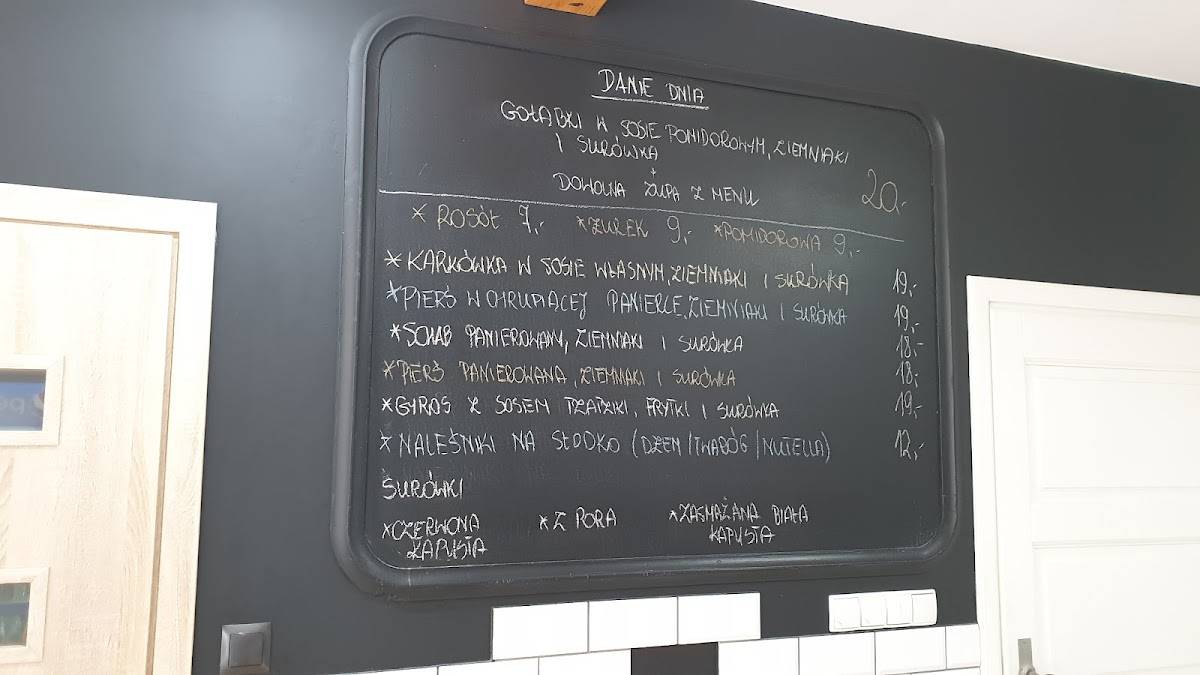 DANIE DNIA
GOŁĄBKI W SOSIE POMIDOROWYM, ZIEMNIAKI
I SURÓWKA
+
DOWOLNA ZUPA Z MENU 20,-
* ROSÓŁ 7,- *ŻUREK 9,- *POMIDOROWA 9,-
* KARKÓWKA W SOSIE WŁASNYM, ZIEMNIAKI I SURÓWKA 19,-
*PIERŚ W CHRUPIĄCEJ PANIERCE, ZIEMNIAKI I SURÓWKA 19,-
*SCHAB PANIEROWANY, ZIEMNIAKI I SURÓWKA 18,-
*PIERŚ PANIEROWANA, ZIEMNIAKI I SURÓWKA 18,-
*GYROS Z SOSEM TZATZIKI, FRYTKI I SURÓWKA 19,-
* NALEŚNIKI NA SŁODKO (DŻEM/TWARÓG/NUTELLA) 12,-
SURÓWKI
*CZERWONA *Z PORA *ZASMAŻANA BIAŁA
KAPUSTA KAPUSTA